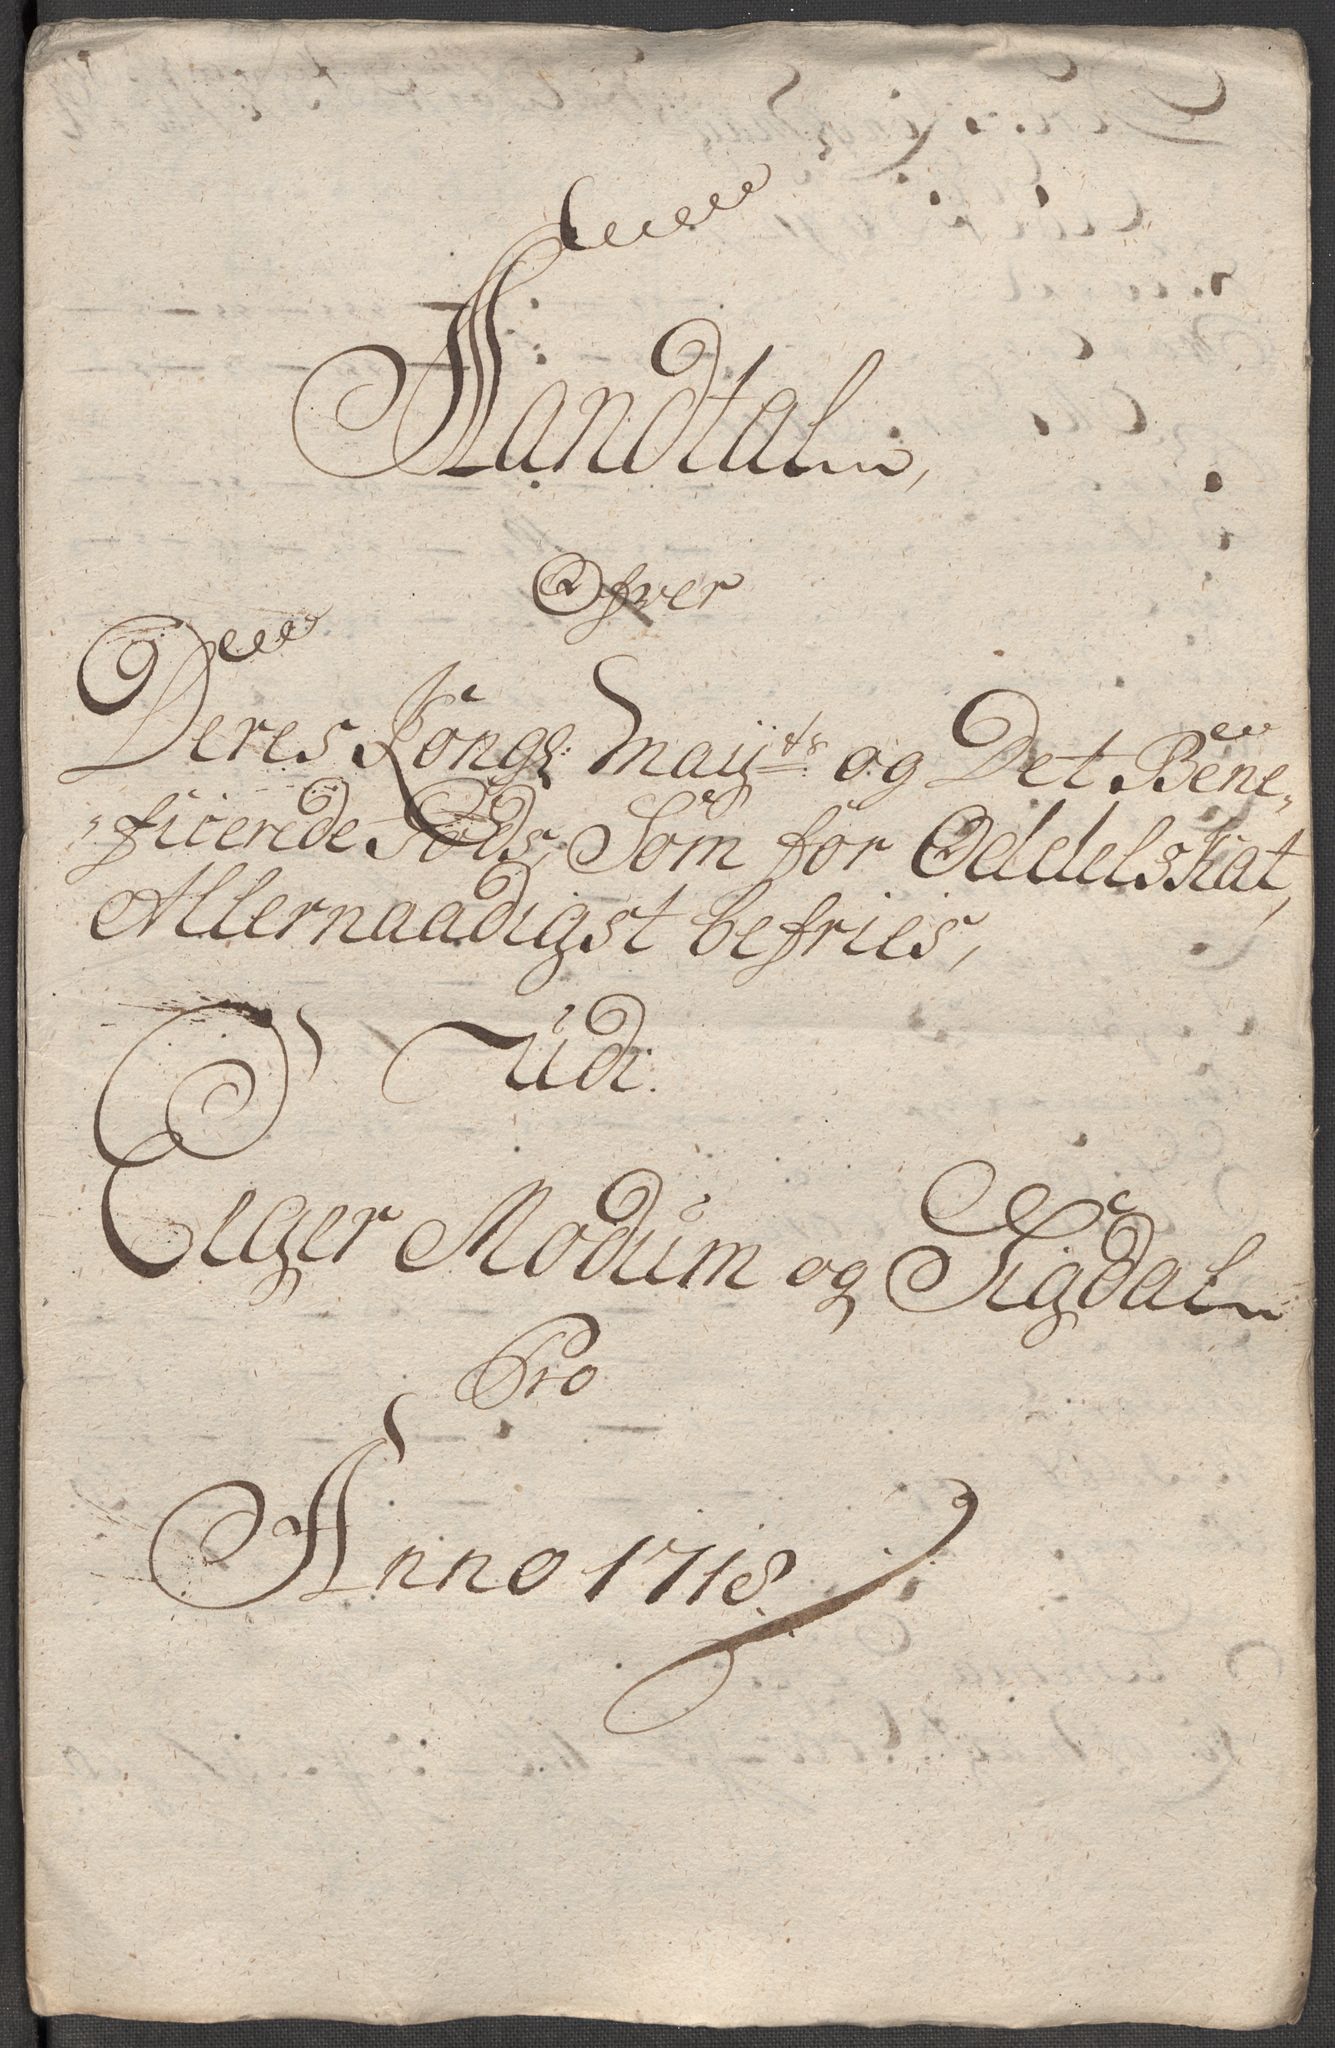 Mandtal,
Ofver
Deres Kongl: Mayts og Det Bene„
„ficerede Gods, Som for Oddelskat,
Allernaadigst befries,
Udi
Eiger Modum og Sigdal
Pro
Anno 1718